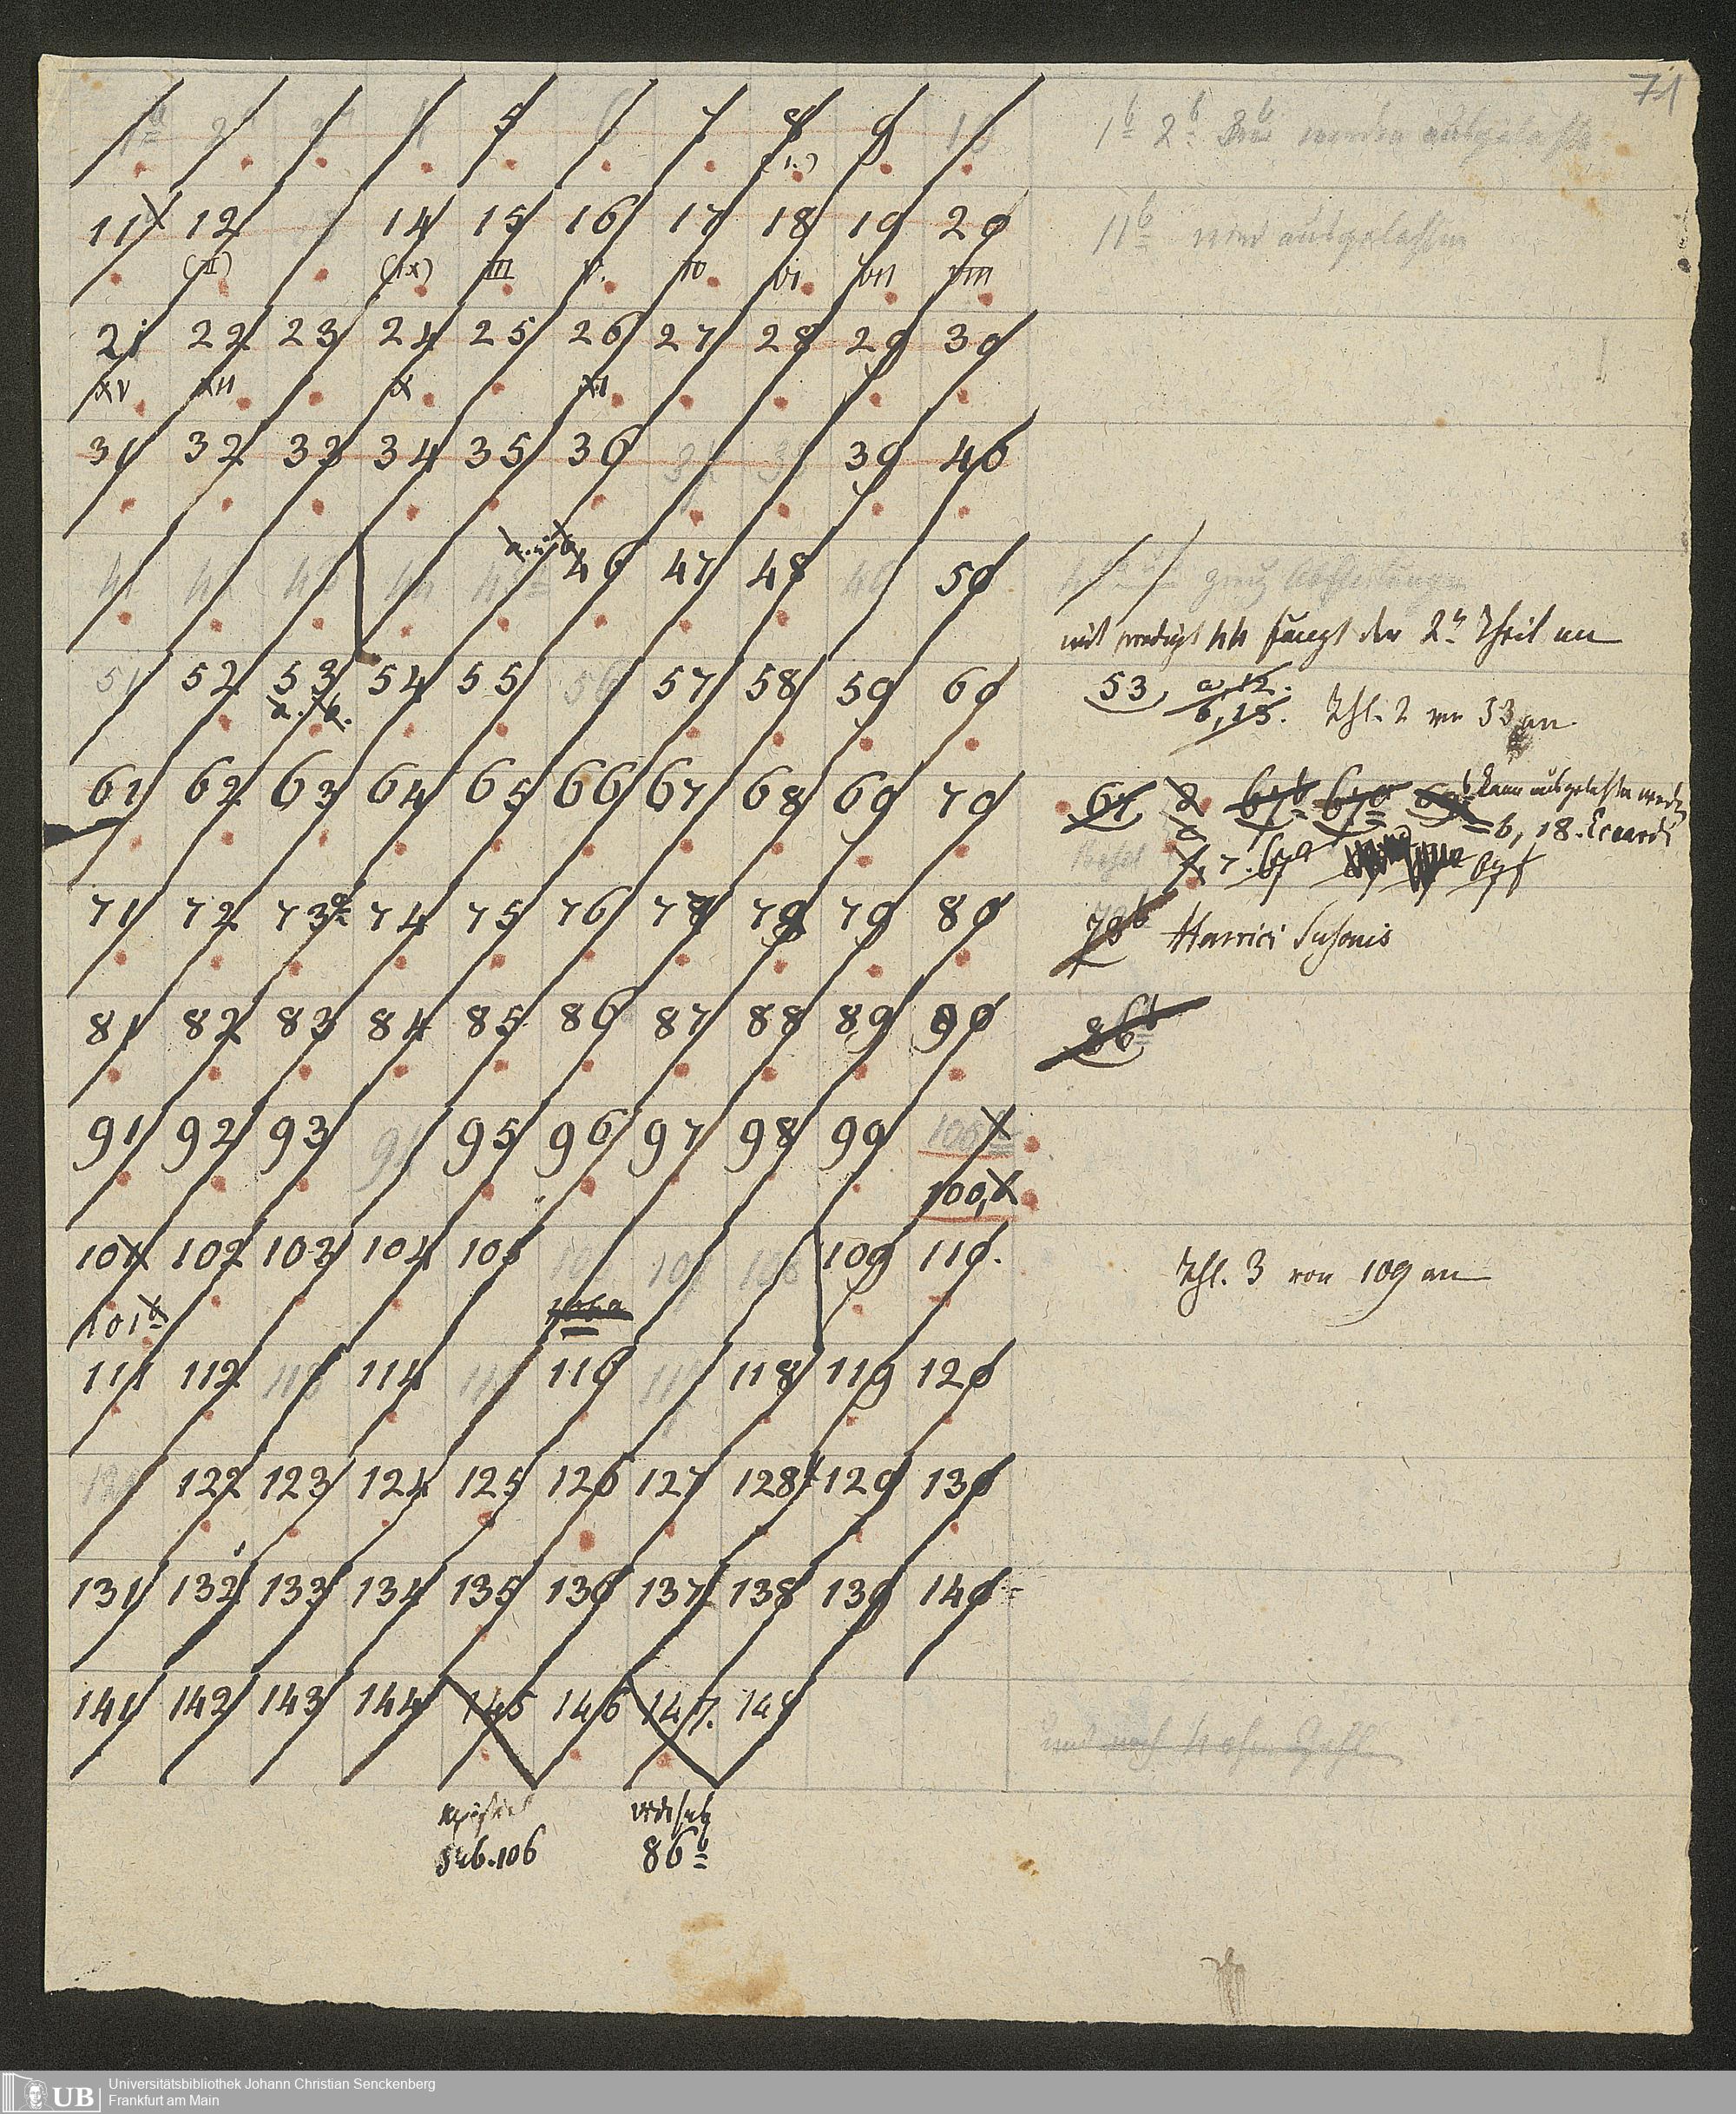 71
1a 2 3 4 5 6 7 8 9 10
(I.)
1b 2b 3b werden ausgelassen
11 12 13 14 15 16 17 18 19 20
11b wird ausgelassen
(II) (IX) III V. IV VI VII VIII
21 22 23 24 25 26 27 28 29 30
XV XII X XI
31 32 33 34 35 36 37 38 39 40
a. u. b
41 42 43 44 45 46 47 48 49 50
mit predigt 44 fängt der 2te Theil an
51 52 53 54 55 56 57 58 59 60
a. b.
53, a, 12.
b, 13. Thl. 2 von 53 an
61 62 63 64 65 66 67 68 69 70
kann ausgelassen werden
b, 18. Eccardi
71 72 73a 74 75 76 77 78 79 80
78b Henrici Susonis
81 82 83 84 85 86 87 88 89 90
86b
91 92 93 94 95 96 97 98 99 100a
100,b
101 102 103 104 105 106 107 108 109 110.
Thl. 3 von 109 an
101b 106a
111 112 113 114 115 116 117 118 119 120
121 122 123 124 125 126 127 128 129 130
131 132 133 134 135 136 137 138 139 140
141 142 143 144 145 146 147. 148
und noch 4 ohne Zahl
sub. 106 86b
UB
Universitätsbibliothek Johann Christian Senckenberg
Frankfurt am Main